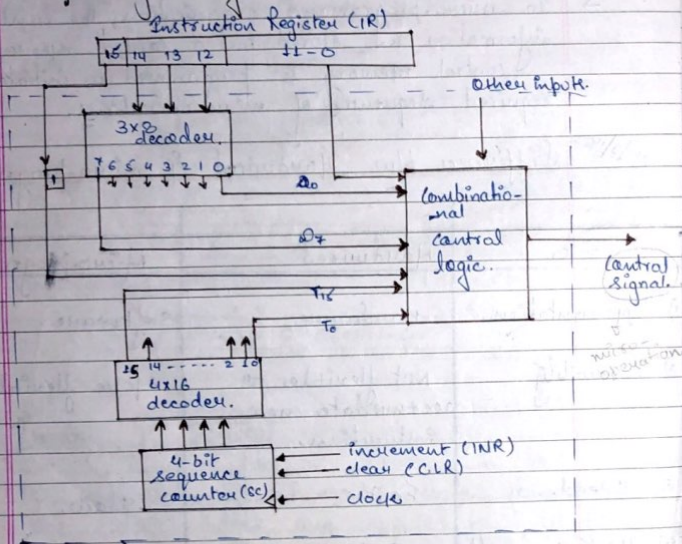 Instruction Register (IR)
15 14 13 12 11-0
other inputs.
3×8
decoder.
7 6 5 4 3 2 1 0
I
D0
combinatio-
nal
control
logic.
D7
control
signal.
T15
T0
15 14 ------ 2 1 0
4x16
decoder.
4-bit
sequence
counter (SC)
increment (INR)
clear (CLR)
clock